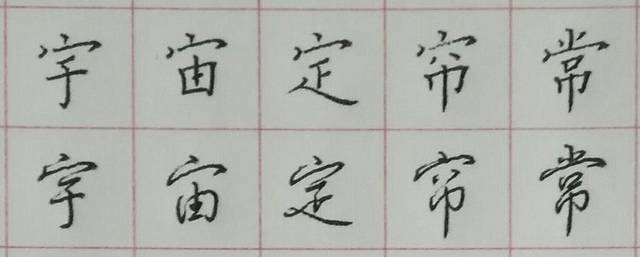 宇宙定帘常
宇宙定帘常